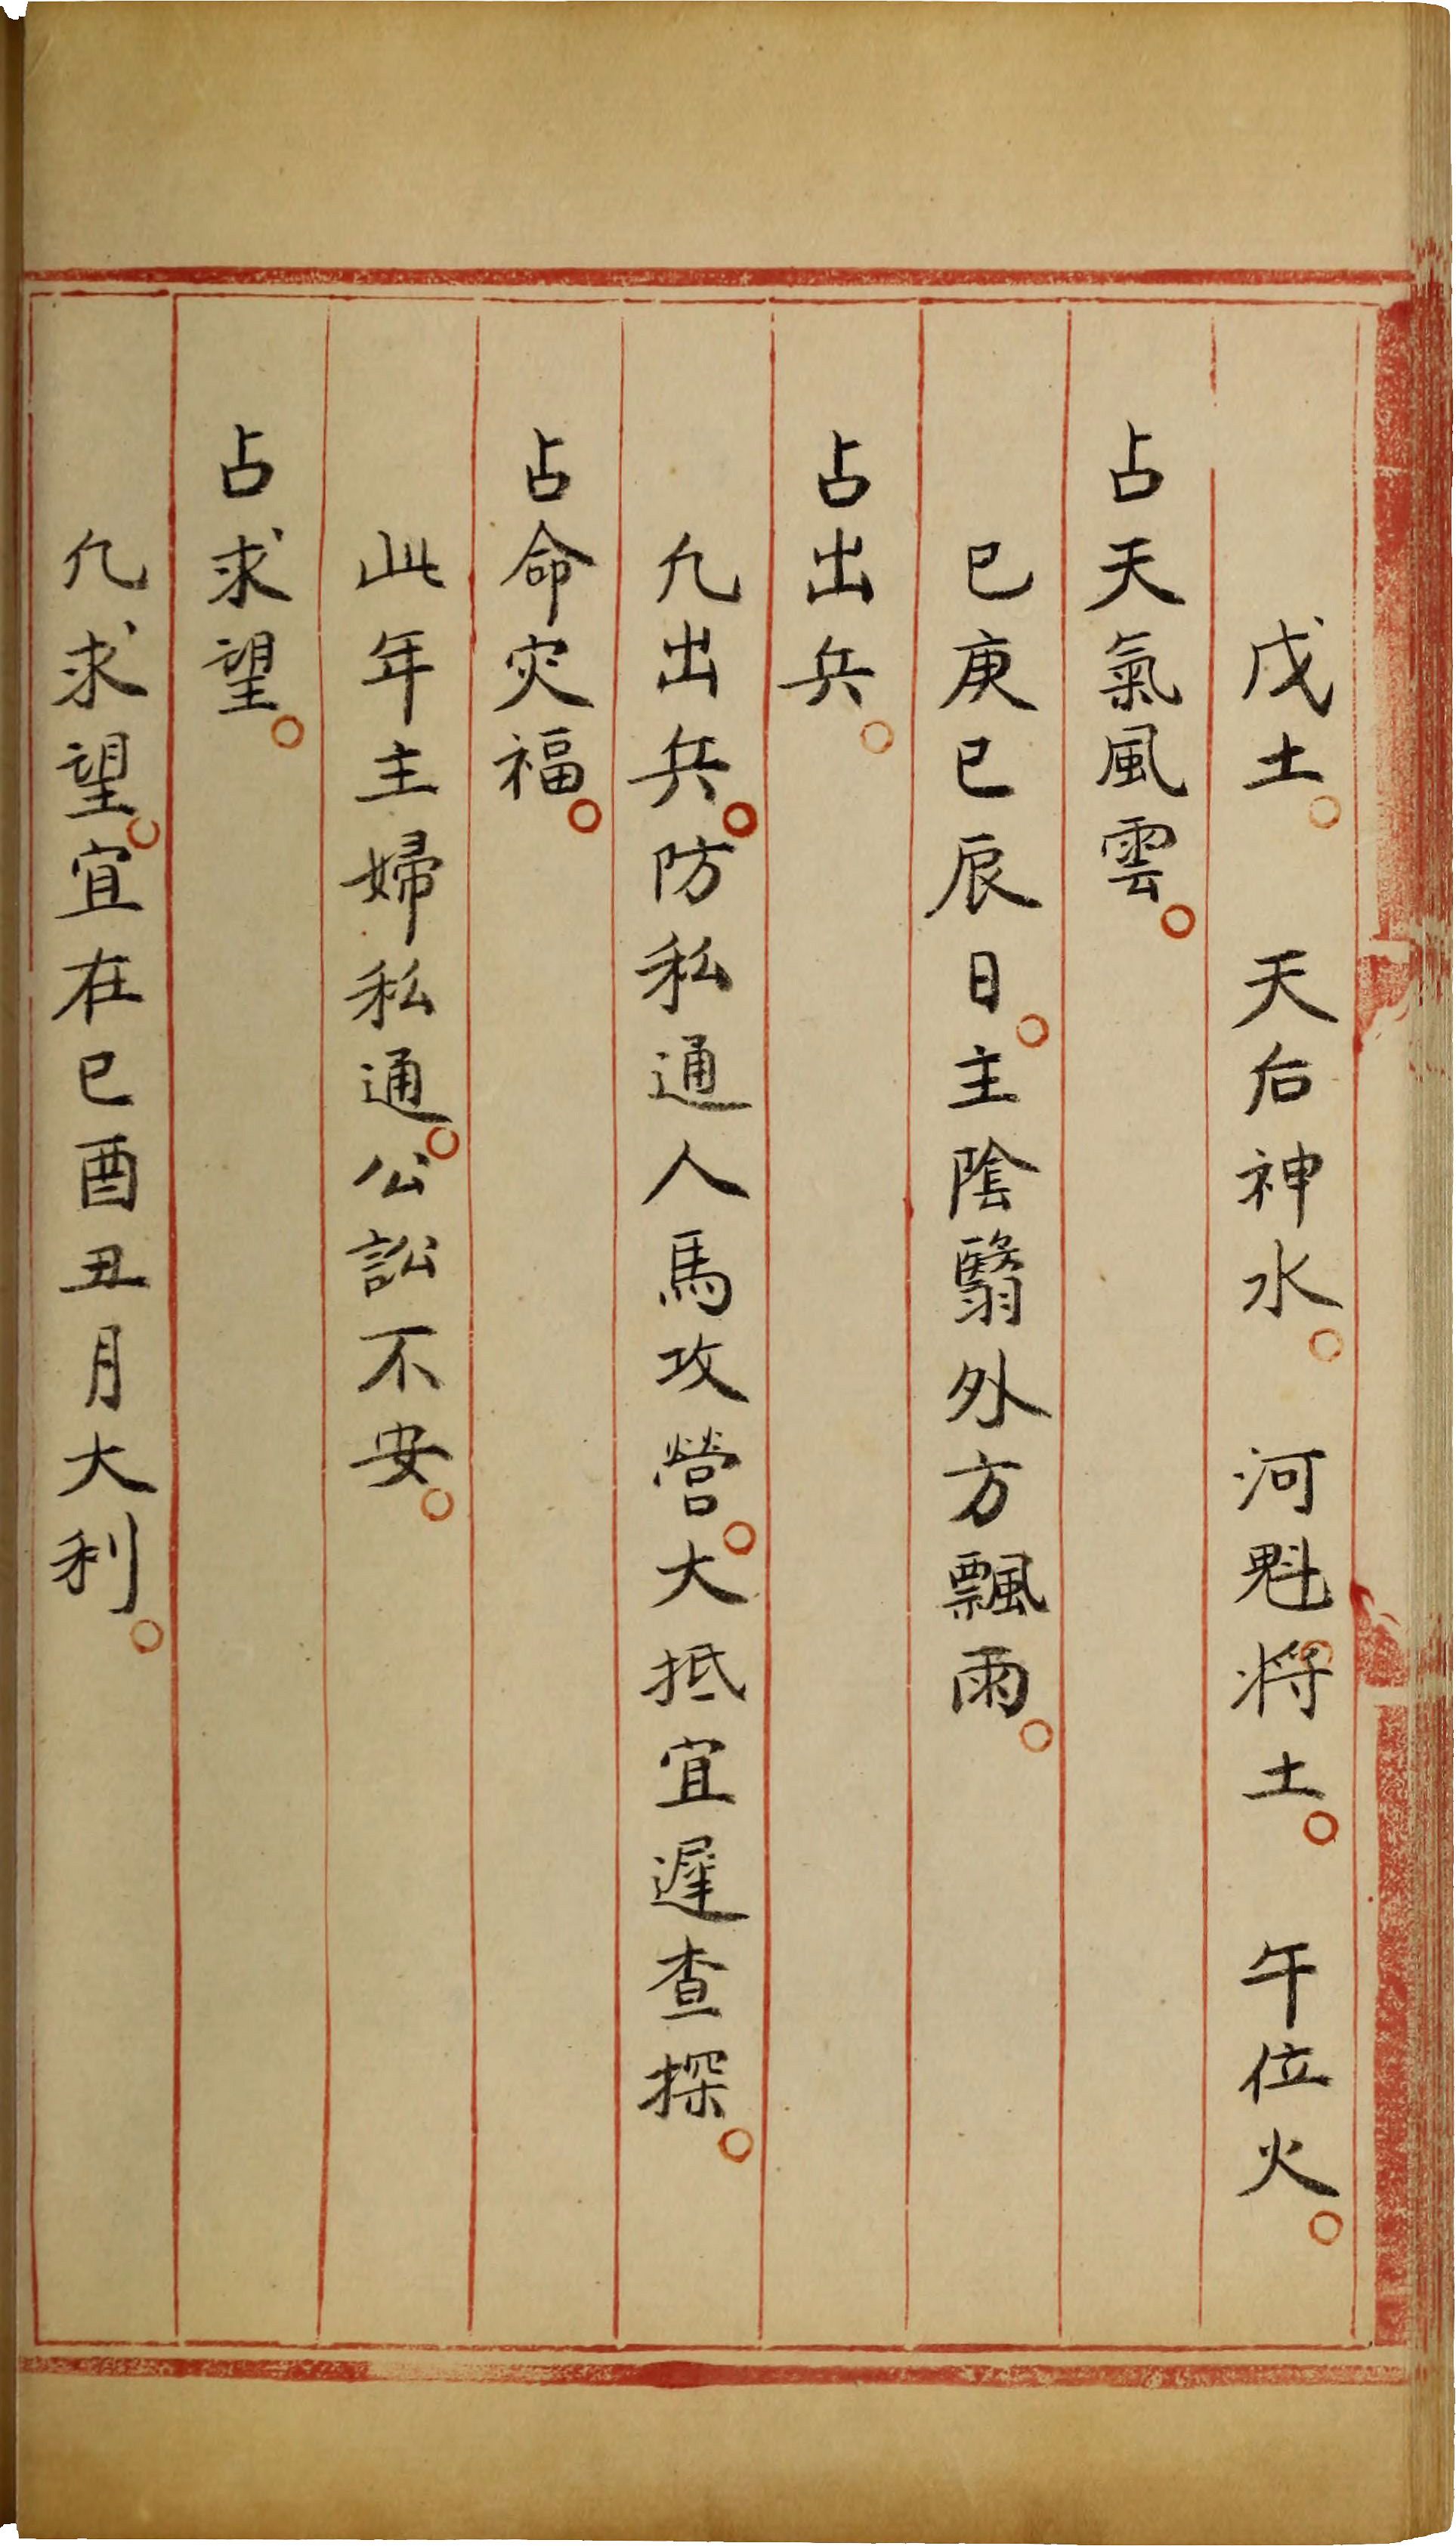 戊土。　天后神水。　河魁將土。　午位火。
占天氣風雲。
巳庚巳辰日。主陰翳外方飄雨。
占出兵。
凢出兵。防私通人馬攻營。大抵宜遲查探。
占命灾福。
此年主婦私通。公訟不安。
占求望。
凢求望。宜在巳酉丑月大利。